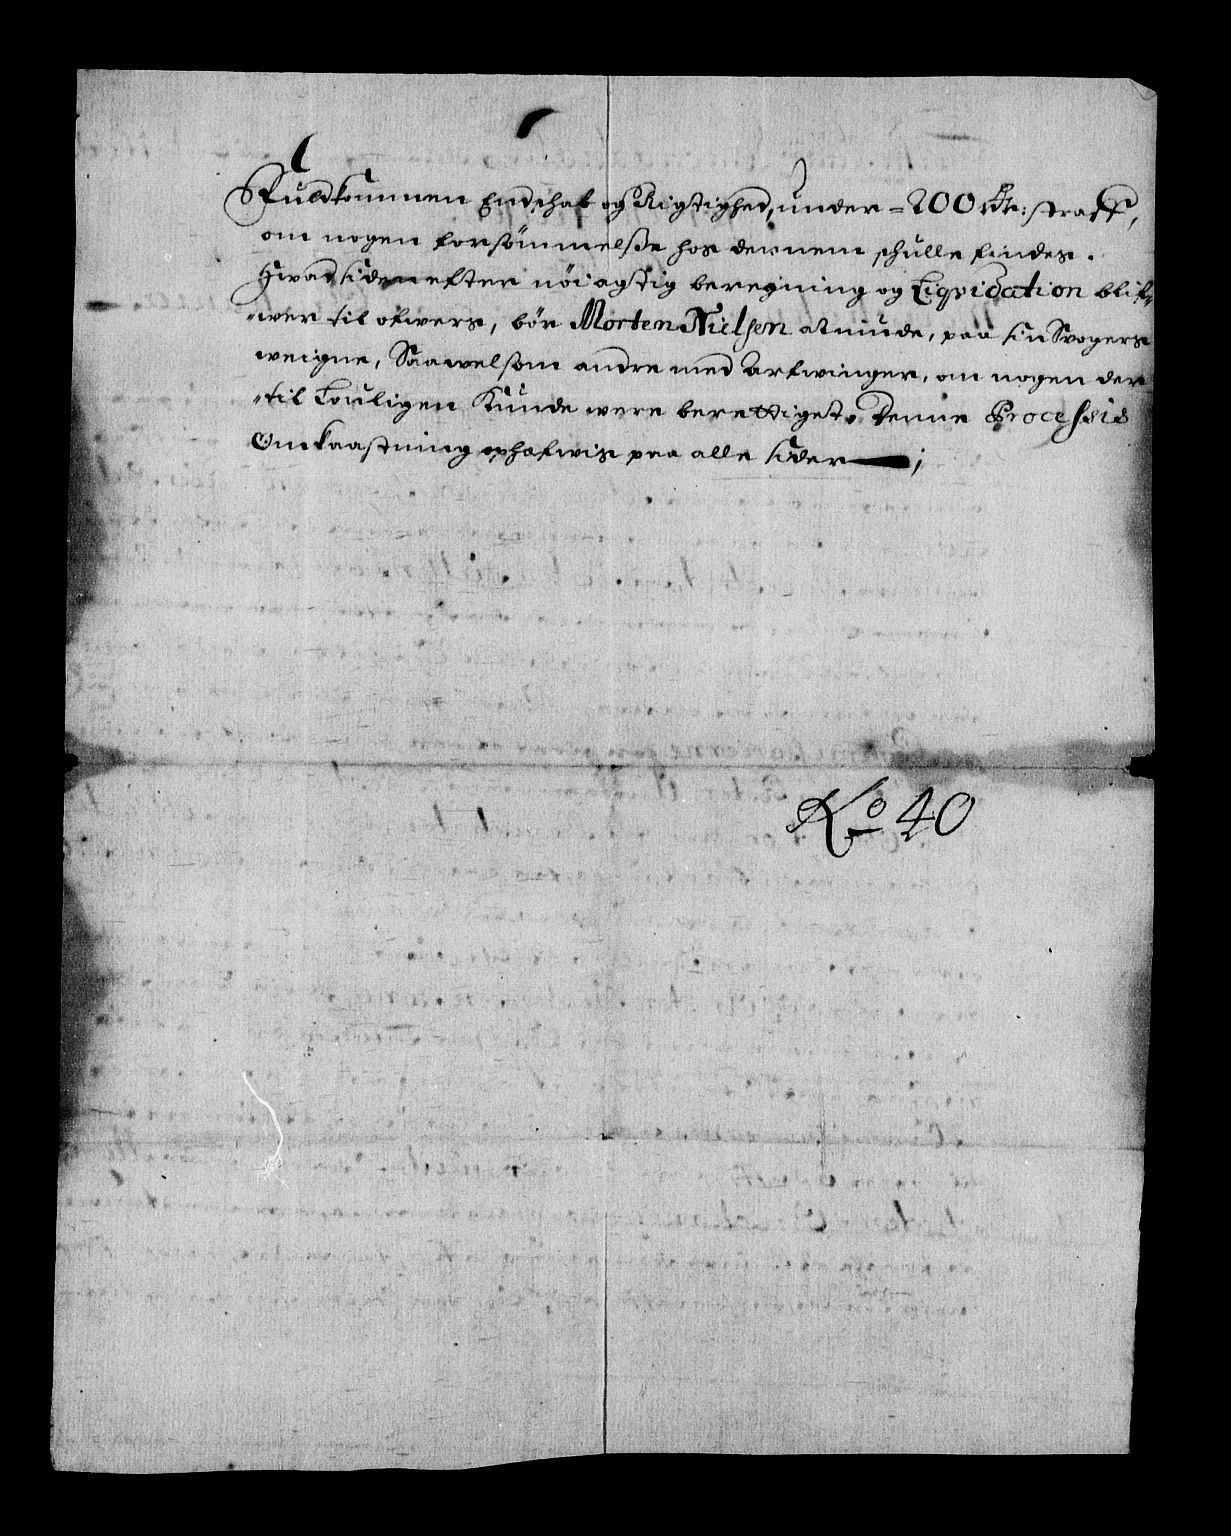 Fuldkommen Endschab og Rigtighed, under = 200 Rdr: straff,
om nogen forsømmelsse hos dennem schulle findes.
Hvad sidenefter nøiagtig beregning og Liqvidation blif-
-wer til ofwers, bør Morten Nielsen at niude, paa sin Svogers
weigne, Saawelsom andre med Arfwinger, om nogen der
-til Louligen Kunde were berettiget. Denne Processis
Omkaastning ophæfwis paa alle sider;
No 40